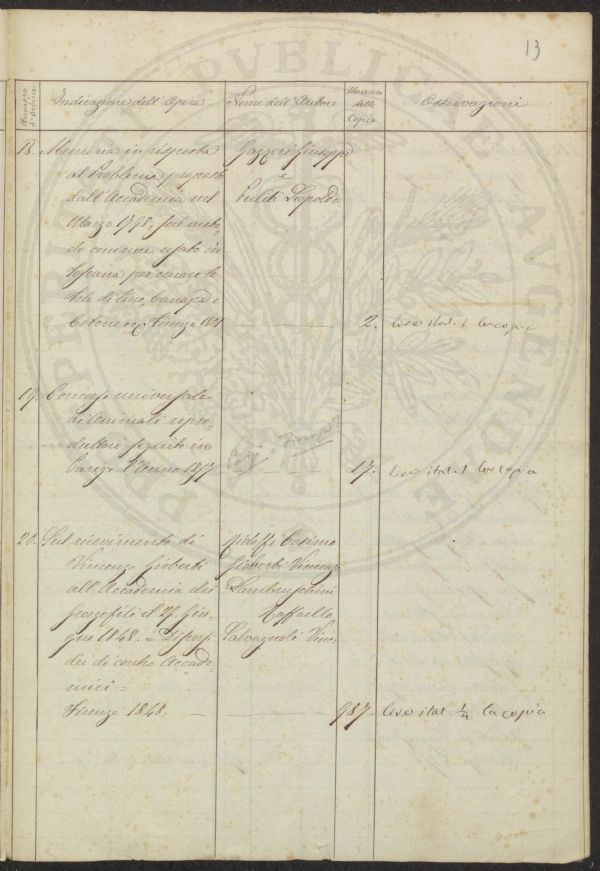 13
Numero d'ordine
Indicazione dell'Opera
Nome dell'Autore
Numero delle Copie
Osservazioni
18. Memoria in risposta
al Problema proposto
dall'Accademia nel
Marzo 1798, sul meto-
do comune usato in
Toscana per curare le
Tele di Lino, Canapa e
Cotone ec. Firenze 1801
Gazzeri Giuseppe
e
Pulik Leopoldo
2.
lire ital. 1 la copia
19. Concorso universale
di Animali ripro-
duttori seguito in
Parigi l'Anno 18
17.
lire ital. 1 la copia
20. Sul ricevimento di
Vincenzo Gioberti
all'Accademia dei
Georgofili il 29 Giu-
gno 1848. = Discorsi
dei di contro Accade-
mici =
Firenze 1848.
Ridolfi Cosimo
Gioberti Vincenzo
Lambruschini
Raffaello
Salvagnoli Vinc.
987.
lire ital. 1/4 la copia
PUBLICAE
AUGENDAE
PROSPERITATI